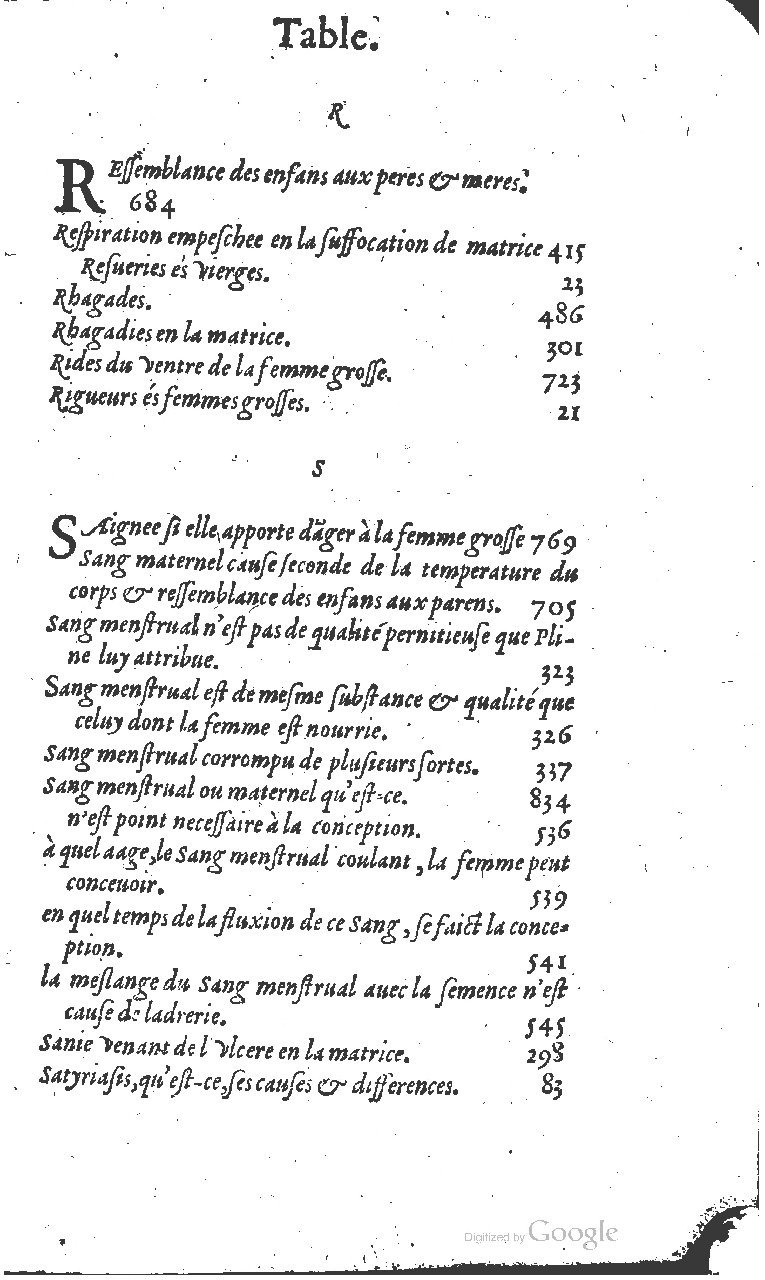 Table.
R
REſſemblance des enfans aux peres & meres.
684
Reſpiration empeſchee en la ſuffocation de matrice 415
Reſueries és vierges. 23
Rhagades. 486
Rhagadies en la matrice. 301
Rides du ventre de la femme groſſe. 723
Rigueurs és femmes groſſes. 21
S
SAignee ſi elle apporte dãger à la femme groſſe 769
Sang maternel cauſe ſeconde de la temperature du
corps & reſſemblance des enfans aux parens. 705
Sang menſtrual n'eſt pas de qualité pernitieuſe que Pli-
ne luy attribue. 323
Sang menſtrual eſt de meſme ſubſtance & qualité que
celuy dont la femme eſt nourrie. 326
Sang menſtrual corrompu de pluſieurs ſortes. 337
Sang menſtrual ou maternel qu'eſt-ce. 834
n'eſt point neceſſaire à la conception. 536
à quel aage, le Sang menſtrual coulant, la femme peut
conceuoir. 539
en quel temps de la fluxion de ce Sang, ſe faict la conce-
ption. 541
la meſlange du Sang menſtrual auec la ſemence n'eſt
cauſe de ladrerie. 545
Sanie venant de l'vlcere en la matrice. 298
Satyriaſis, qu'eſt-ce, ſes cauſes & differences. 83
Digitized by Google